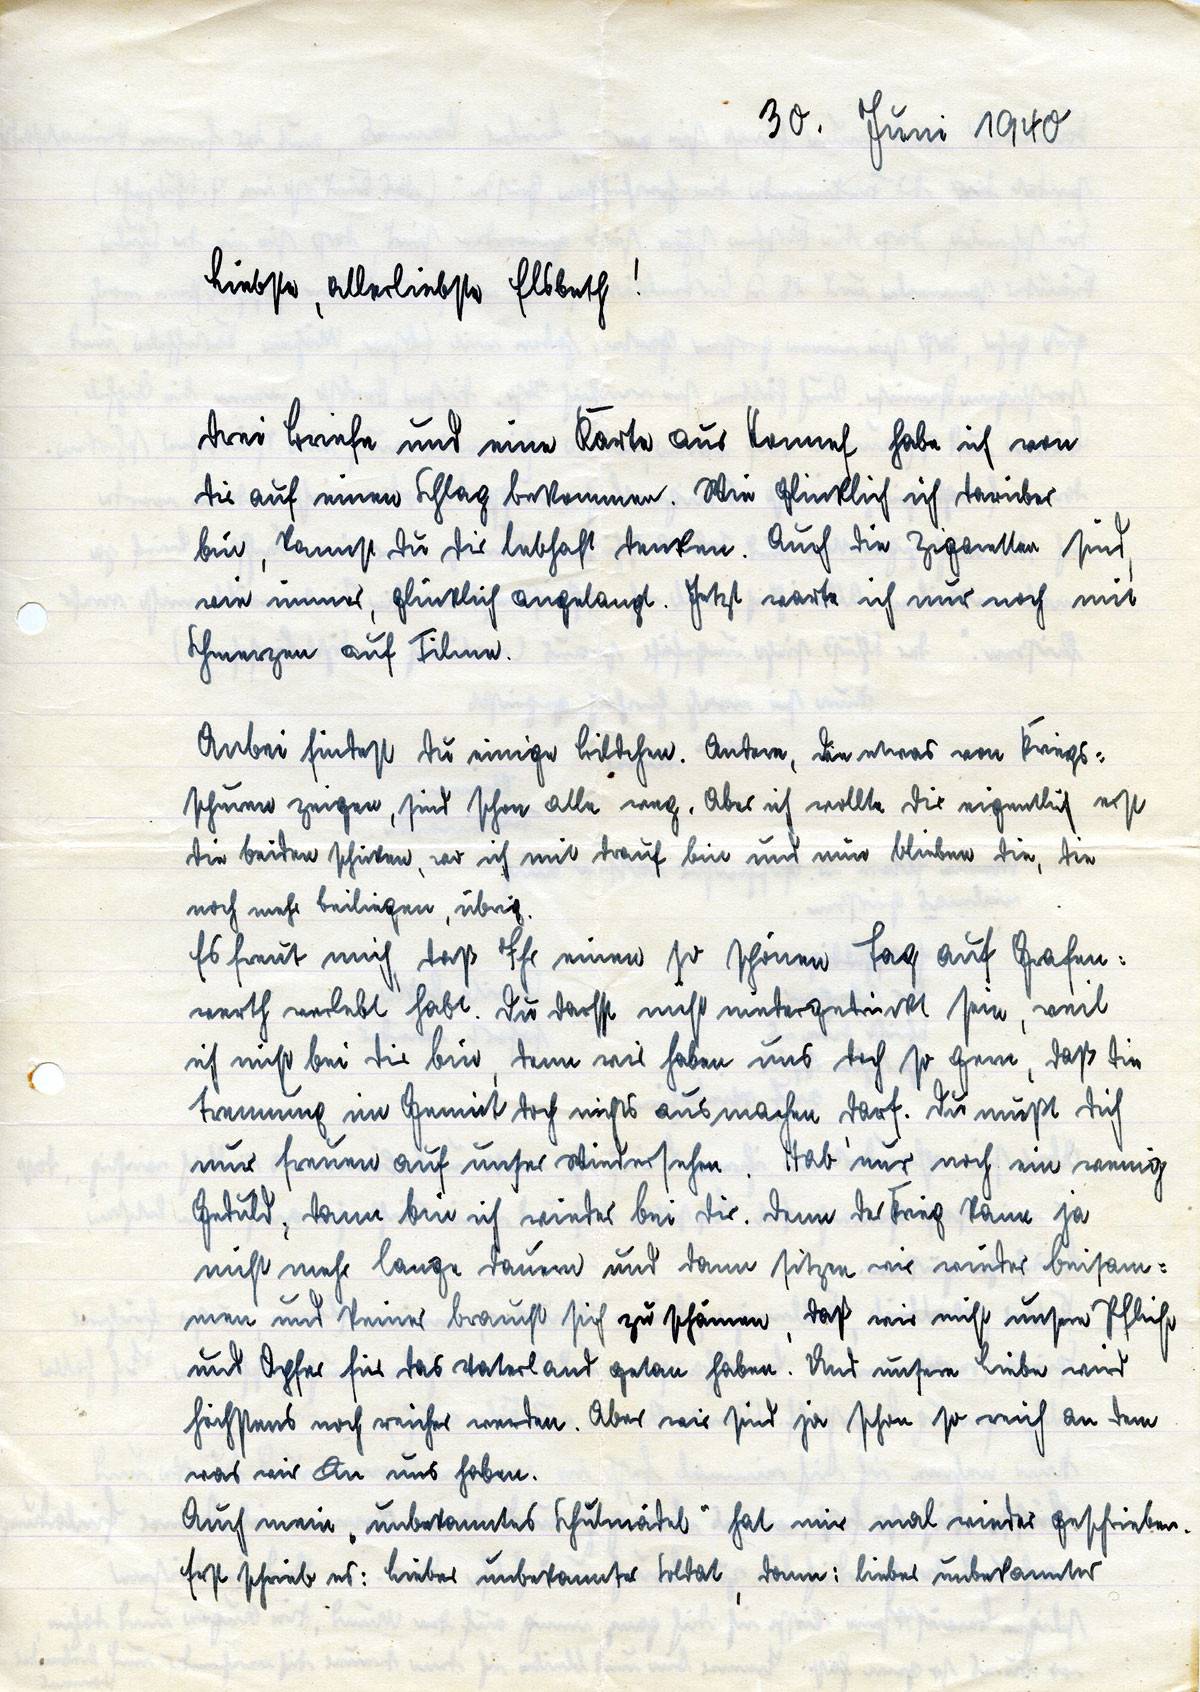 30. Juni 1940
Liebste, allerliebste Elsbeth!
Drei Briefe und eine Karte aus Honnef habe ich von
Dir auf einen Schlag bekommen. Wie glücklich ich darüber
bin, kannst Du Dir lebhaft denken. Auch die Zigaretten sind,
wie immer, glücklich angelangt. Jetzt warte ich nur noch mit
Schmerzen auf Filme.
Anbei findest Du einige Bildchen. Andere, die etwas von Kriegs=
spuren zeigen, sind schon alle weg. Aber ich wollte Dir eigentlich erst
die beiden schicken, wo ich mit drauf bin und nun blieben die, die
noch mehr beiliegen, übrig.
Es freut mich, daß Ihr einen so schönen Tag auf Grafen=
werth verlebt habt. Du darfst nicht niedergedrückt sein, weil
ich nicht bei Dir bin, denn wir haben uns doch so gern, daß die
Trennung im Gemüt doch nichts ausmachen darf. Du mußt Dich
nur freuen auf unser Wiedersehen. Hab nur noch ein wenig
Geduld, dann bin ich wieder bei Dir. Denn der Krieg kann ja
nicht mehr lange dauern und dann sitzen wir wieder beisam=
men und keiner braucht sich zu schämen, daß wir nicht unsere Pflicht
und Opfer für das Vaterland getan haben. Und unsere Liebe wird
höchstens noch reicher werden. Aber wir sind ja schon so reich an dem
was wir an uns haben.
Auch mein „unbekanntes Schulmädel" hat mir mal wieder geschrieben.
Erst schrieb es: Lieber unbekannter Soldat, dann: lieber unbekannter